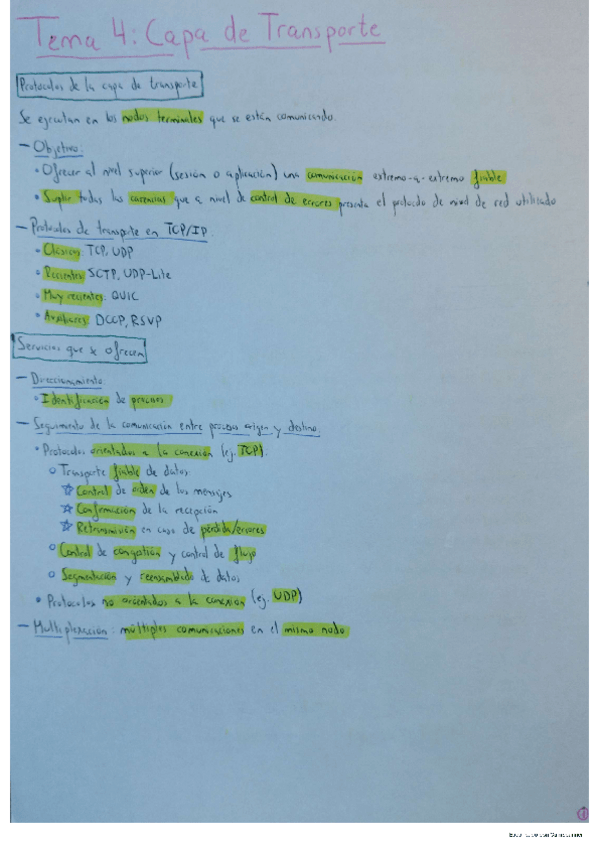 Tema 4: Capa de Transporte
Protocolos de la capa de transporte
Se ejecutan en los nodos terminales que se están comunicando.
- Objetivo:
• Ofrecer al nivel superior (sesión o aplicación) una comunicación extremo-a-extremo fiable
• Suplir todas las carencias que a nivel de control de errores presenta el protocolo de nivel de red utilizado
- Protocolos de transporte en TCP/IP:
• Clásicos: TCP, UDP
• Recientes: SCTP, UDP-Lite
• Muy recientes: QUIC
• Auxiliares: DCCP, RSVP
Servicios que se ofrecen
- Direccionamiento:
• Identificación de procesos
- Seguimiento de la comunicación entre procesos origen y destino.
• Protocolos orientados a la conexión (ej. TCP):
○ Transporte fiable de datos:
☆ Control de orden de los mensajes
☆ Confirmación de la recepción
☆ Retransmisión en caso de pérdida/errores
○ Control de congestión y control de flujo
○ Segmentación y reensamblado de datos
• Protocolos no orientados a la conexión (ej. UDP)
- Multiplexación: múltiples comunicaciones en el mismo nodo
1